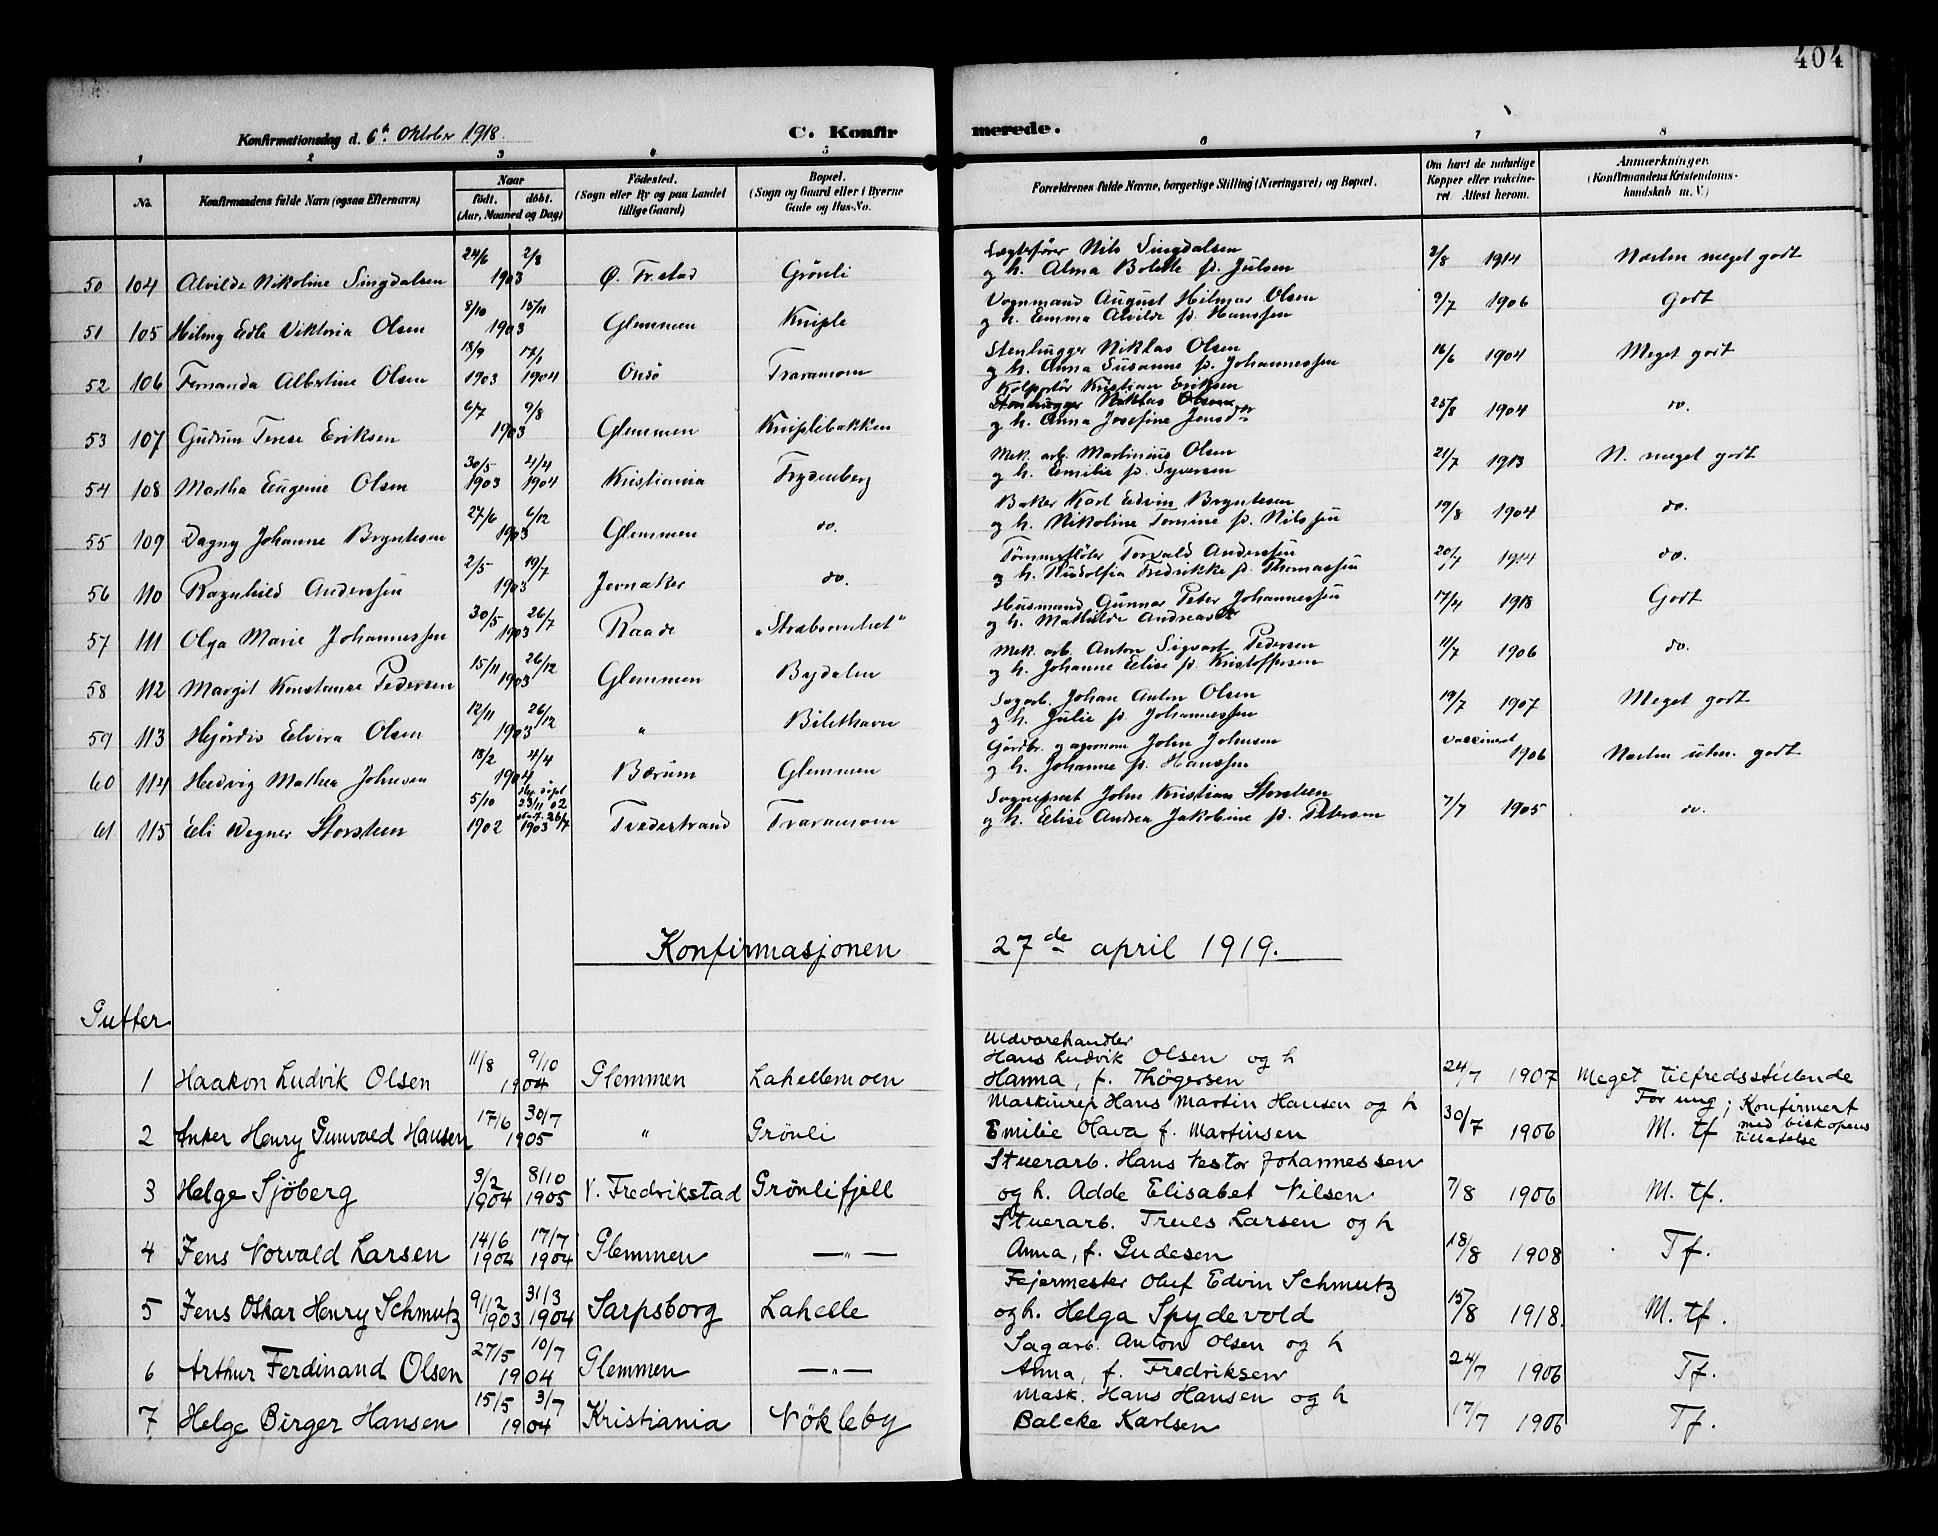 404
Konfirmationsdag d. 6te Oktober 1918.
C. Konfirmerede.
1 2 3 4 5 6 7 8
No. Konfirmandens fulde Navn (ogsaa Efternavn) Naar født. døbt. (Aar, Maaned og Dag) Fødested. (Sogn eller By og paa Landet tillige Gaard) Bopæl. (Sogn og Gaard eller i Byerne Gade og Hus-No. Forældrenes fulde Navne, borgerlige Stilling (Næringsvei) og Bopæl. Om havt de naturlige Kopper eller vakcineret Attest herom. Anmærkninger. (Konfirmandens Kristendomskundskab m. V.)
24/6 2/8 Lægtefører Nils Singdalsen
50 104 Alvilde Nikoline Singdalsen 1903 Ø. Fr.stad Grönli og h. Alma Bolette f. Julsen 2/8 1914 Næsten meget godt
8/10 15/11 Vognmand August Hilmar Olsen
51 105 Hilmy Edle Viktoria Olsen 1903 Glemmen Kniple og h. Emma Alvilde f. Hanssen 9/7 1906 Godt
13/9 17/1 Stenhugger Niklas Olsen
52 106 Fernanda Albertine Olsen 1903 1904 Onsö Traramom og h. Anna Susanne f. Johannessen 16/6 1904 Meget godt
6/7 9/8 Kolportör Kristian Eriksen
Stenhugger Niklas Olsen
53 107 Gudrun Terese Eriksen 1903 Glemmen Kniplebakken og h. Anna Josefine Jensdtr 25/8 1904 do.
30/5 21/4 Mek. arb. Martinius Olsen
54 108 Martha Eugenie Olsen 1903 1904 Kristiania Frydenberg og h. Emilie f. Syversen 21/7 1913 N. meget godt
27/6 6/12 Baker Karl Edvin Bryntesen
55 109 Dagny Johanne Bryntesen 1903 Glemmen do. og h. Nikoline Tomine f. Nilssen 19/8 1904 do.
2/5 19/7 Tömmerflöter Torvald Anderssen
56 110 Ragnhild Anderssen 1903 Jevnaker do. og h. Rudolfia Fredrikke f. Thomassen 20/7 1914 do.
30/5 26/7 Husmand Gunnar Peter Johannessen
57 111 Olga Marie Johannessen 1903 Raade og h. Mathilde Andreasdtr 17/4 1918 Godt
15/11 26/12 Mek. arb. Anton Sigvart Pedersen
58 112 Margit Konstanse Pedersen 1903 Glemmen Bydalen og h. Johanne Elise f. Kristoffersen 11/7 1906 do.
12/11 26/12 Sagarb. Johan Anton Olsen
59 113 Hjördis Elvira Olsen 1903 " Bilethavn og h. Julie f. Johannessen 19/7 1907 Meget godt
13/2 4/4 Gårdbr. og agronom John Johnsen vaccinert
60 114 Hedvig Mathea Johnsen 1904 Bærum Glemmen og h. Johanne f. Hanssen 1906 Næsten udm. godt
5/10 23/11 02 Sogneprest John Kristian Storsteen
61 115 Eli Wegner Storsteen 1902 1903 26/7 Tvedestrand Traramom og h. Elise Andrea Jakobine f. Petersen 7/7 1905 do.
Konfirmasjonen 27de april 1919.
Gutter
11/8 9/10 Uldvarehandler Hans Ludvik Olsen og h
1 Haakon Ludvik Olsen 1904 Glemmen Lahellemoen Hanna, f. Thögersen 24/7 1907 Meget tilfredsstillende
17/6 30/7 Maskinrep Hans Martin Hansen og h For ung; Konfirmert
2 Anker Henry Gunvald Hansen 1905 " Grönli Emilie Olava f. Martinsen 30/7 1906 M. tf med biskopens tillatelse
3/2 8/10 Stuerarb. Hans Nestor Johannessen
3 Helge Sjöberg 1904 1905 V. Fredrikstad Grönlifjell og h. Adde Elisabet Nilsen 7/8 1906 M. tf.
14/6 17/7 Stuerarb. Truls Larsen og h
4 Jens Norvald Larsen 1904 1904 Glemmen —"— Anna, f. Gudesen 18/8 1908 Tf.
9/12 31/3 Fejermester Oluf Edvin Schmutz
5 Jens Oskar Henry Schmutz 1903 1904 Sarpsborg Lahelle og h. Helga Spydevold 15/8 1918. M. tf.
27/5 10/7 Sagarb. Anton Olsen og h
6 Arthur Ferdinand Olsen 1904 Glemmen —"— Anna, f. Fredriksen 24/7 1906 Tf.
15/5 3/7 Mask. Hans Hansen og h
7 Helge Birger Hansen 1904 Kristiania Nökleby Balcke Karlsen 17/7 1906 Tf.